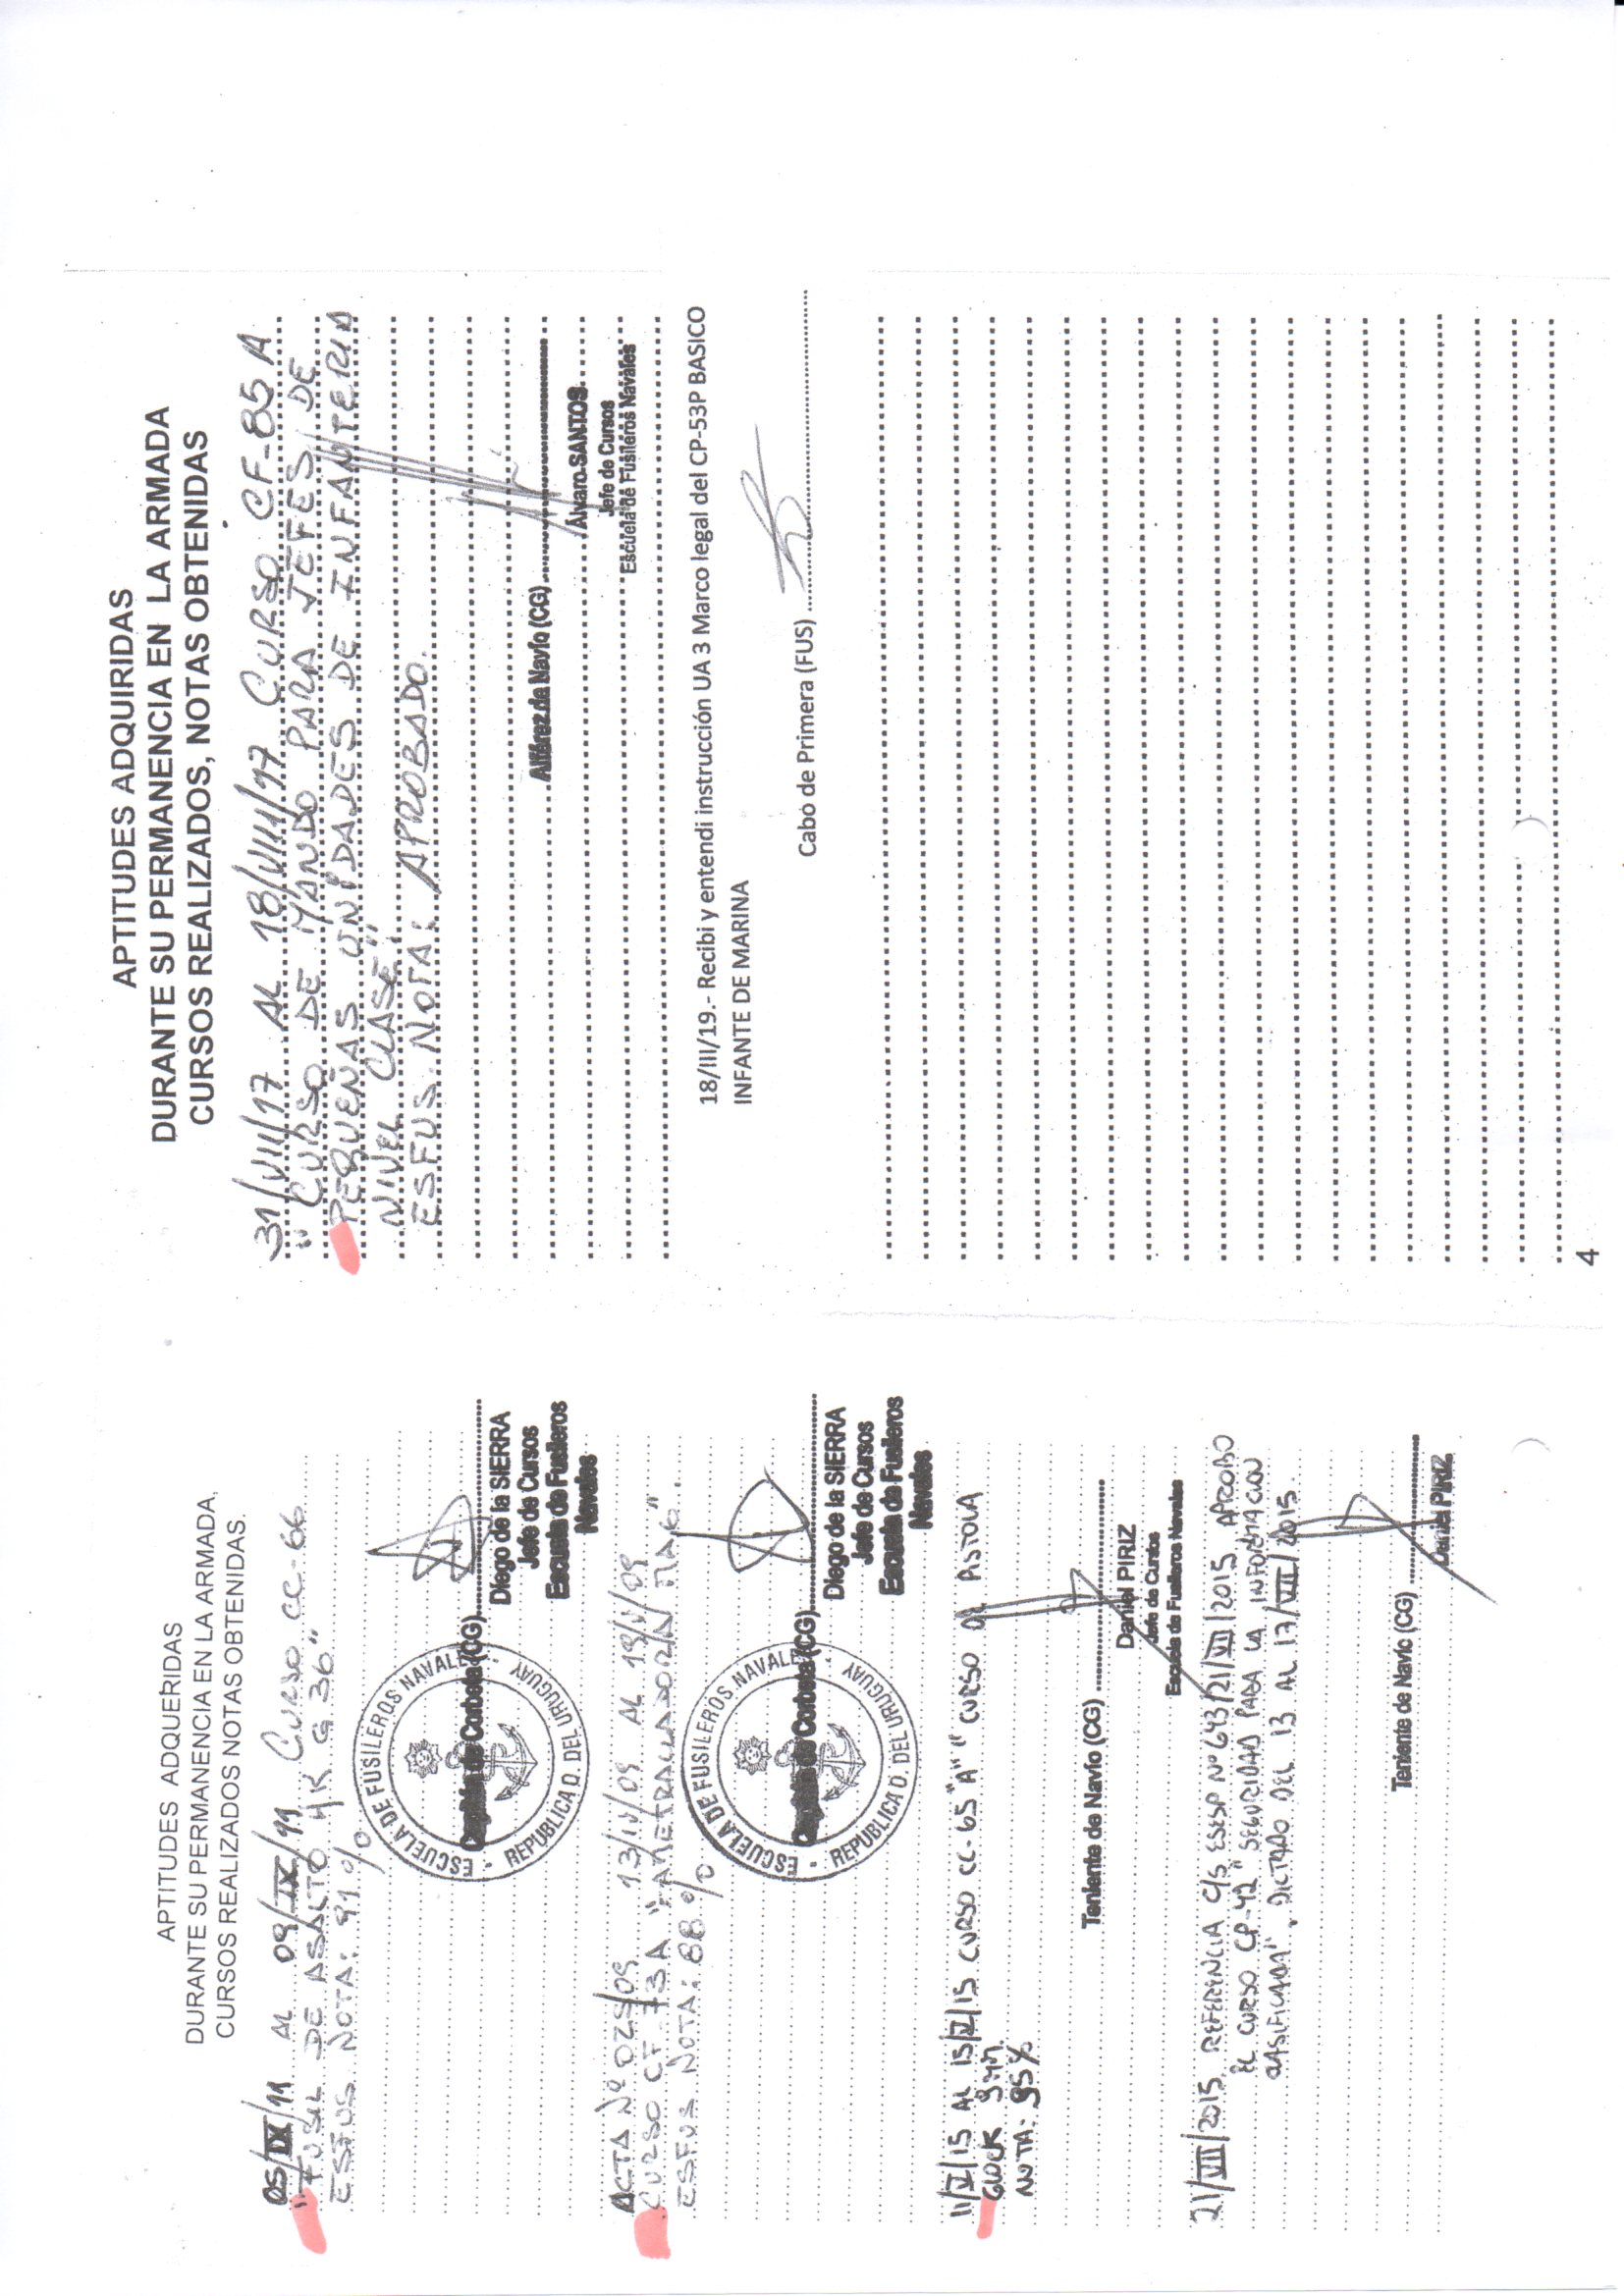 APTITUDES ADQUERIDAS
DURANTE SU PERMANENCIA EN LA ARMADA,
CURSOS REALIZADOS NOTAS OBTENIDAS.
05/IX/11 AL 09/IX/11 CURSO CC-66
"FUSIL DE ASALTO HK G 36"
ESFUS NOTA: 91 %
ESCUELA DE FUSILEROS NAVALES
REPUBLICA O. DEL URUGUAY
Capitán de Corbeta (CG)
Diego de la SIERRA
Jefe de Cursos
Escuela de Fusileros
Navales
ACTA Nº 025/09 13/IV/09 AL 19/V/09
CURSO CF-73A "AMETRALLADORA MAG".
ESFUS NOTA: 88 %
ESCUELA DE FUSILEROS NAVALES
REPUBLICA O. DEL URUGUAY
Capitán de Corbeta (CG)
Diego de la SIERRA
Jefe de Cursos
Escuela de Fusileros
Navales
11/V/15 AL 15/V/15 CURSO CC-65 "A" "CURSO DE PISTOLA
GLOCK 9MM.
NOTA: 95%
Teniente de Navío (CG)
Daniel PIRIZ
Jefe de Cursos
Escuela de Fusileros Navales
21/VII/2015 REFERENCIA C/S ESESP Nº 643/21/VII/2015 APROBO
EL CURSO CP-42 "SEGURIDAD PARA LA INFORMACION
CLASIFICADA". DICTADO DEL 13 AL 17/VII/2015.
Teniente de Navío (CG)
Daniel PIRIZ
APTITUDES ADQUIRIDAS
DURANTE SU PERMANENCIA EN LA ARMADA
CURSOS REALIZADOS, NOTAS OBTENIDAS
31/VII/17 AL 18/VIII/17 CURSO CF-85 A
"CURSO DE MANDO PARA JEFES DE
PEQUEÑAS UNIDADES DE INFANTERIA
NIVEL CLASE"
ESFUS NOTA: APROBADO.
Alférez de Navío (CG)
Álvaro SANTOS
Jefe de Cursos
Escuela de Fusileros Navales
18/III/19.- Recibi y entendi instrucción UA 3 Marco legal del CP-53P BASICO
INFANTE DE MARINA
Cabo de Primera (FUS)
4